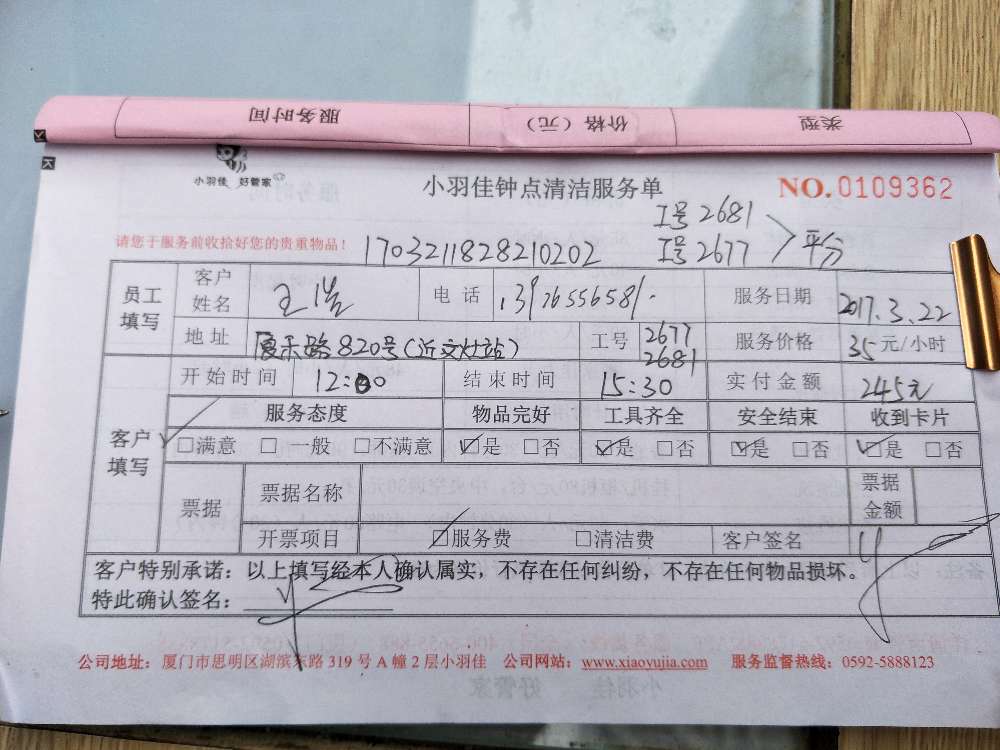 服务时间 价格（元） 类型
小羽佳 好管家
小羽佳钟点清洁服务单 NO.0109362
工号2681
请您于服务前收拾好您的贵重物品！ 1703211828210202 工号2677 平分
员工填写 客户姓名 王 电话 服务日期 2017.3.22
地址 厦禾路820号(近文灶站) 工号 2677 2681 服务价格 35元/小时
客户填写 开始时间 12:00 结束时间 15:30 实付金额 245元
服务态度 物品完好 工具齐全 安全结束 收到卡片
☑满意 □一般 □不满意 ☑是 □否 ☑是 □否 ☑是 □否 ☑是 □否
票据 票据名称 票据金额
开票项目 ☑服务费 □清洁费 客户签名
客户特别承诺：以上填写经本人确认属实，不存在任何纠纷，不存在任何物品损坏。
特此确认签名：
公司地址：厦门市思明区湖滨东路 319 号 A 幢 2 层小羽佳 公司网站：www.xiaoyujia.com 服务监督热线：0592-5888123